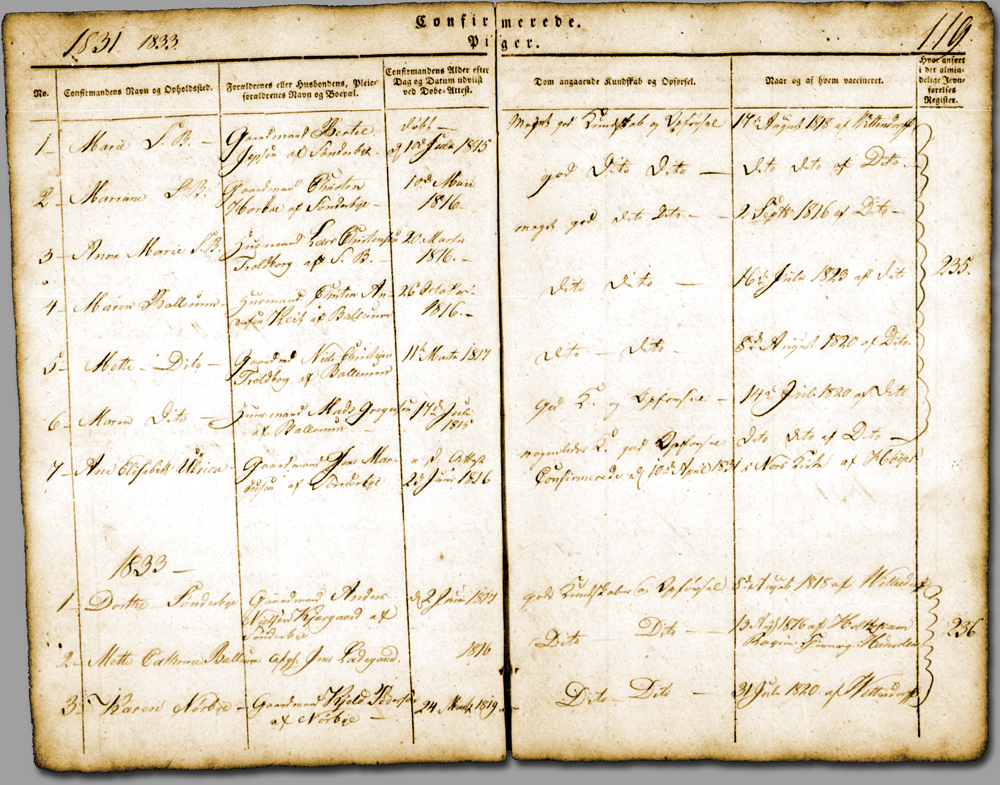 Confirmerede.
1831 1833.
Piger.
119.
No.
Confirmandens Navn og Opholdssted.
Forældrenes eller Husbondens, Pleie-
forældrenes Navn og Boepæl.
Confirmandens Alder efter
Dag og Datum udviist
ved Døbe-Attest.
Dom angaaende Kundskab og Opførsel.
Naar og af hvem vaccineret.
Hvor anført
i det almin-
delige Jevn-
førelses
Register.
1 - Marie S. B. -
Gaardmand Bertel
Jepsen af Sønderbye
døbt -
1815
meget god Kundskab og Opførsel
17d August
2 - Mariane S. B.
Gaardmand
af Sønderbye
10d
1816
god Dito Dito -
dito dito af Dito.
3 - Anna Marie S. B.
Huusmand Lars Christensen
Troldborg af S. B. -
20 Martii
1816. -
meget god dito Dito -
2 Septbr 1816 af Dito -
4 - Maren Ballum -
Huusmand An-
af Ballum
26 October
1816. -
dito dito
16d Julii 1823 af dito
235.
5 - Mette - Dito -
Gaardmd Niels Christian
Troldborg af Ballum
11d Marts 1817
dito - dito
8d August 1820 af Dito
6 - Maren Dito -
Huusmand Mads Gregersen
af Ballum -
17d Juli
1815
God K. og Opførsel -
14d 1820 af Dito
7 - Ane Elisabeth Ulrica
Gaardmand Jens Mar-
cussen af Sønderbye
Attest
23 Junii 1816
K. god Opførsel
dito dito af Dito -
Confirmerede d 10d April 1831 i Nørre Kirke af Høyer
1833 -
1 - Dorthe Sønderbye
Gaardmand Anders
Nissen Kjergaard af
Sønderbye
d 2 Junii 1817
gode Kundskaber og Opførsel
8d 1818 af
2 - Mette Cathrine Ballum
Jens Ladegaard.
1816
Dito Dito -
13 Aug 1816 af
236
3 - Karen Nørbye -
Gaardmand Kjeld Pedersen
af Nørbye -
24 Marts 1819
Dito - Dito -
31 Julii 1820 af